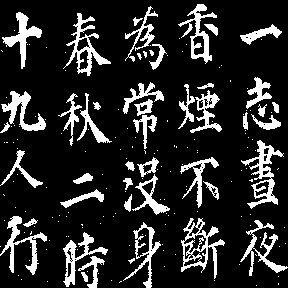 一志晝夜
香煙不斷
為常沒身
春秋二時
十九人行